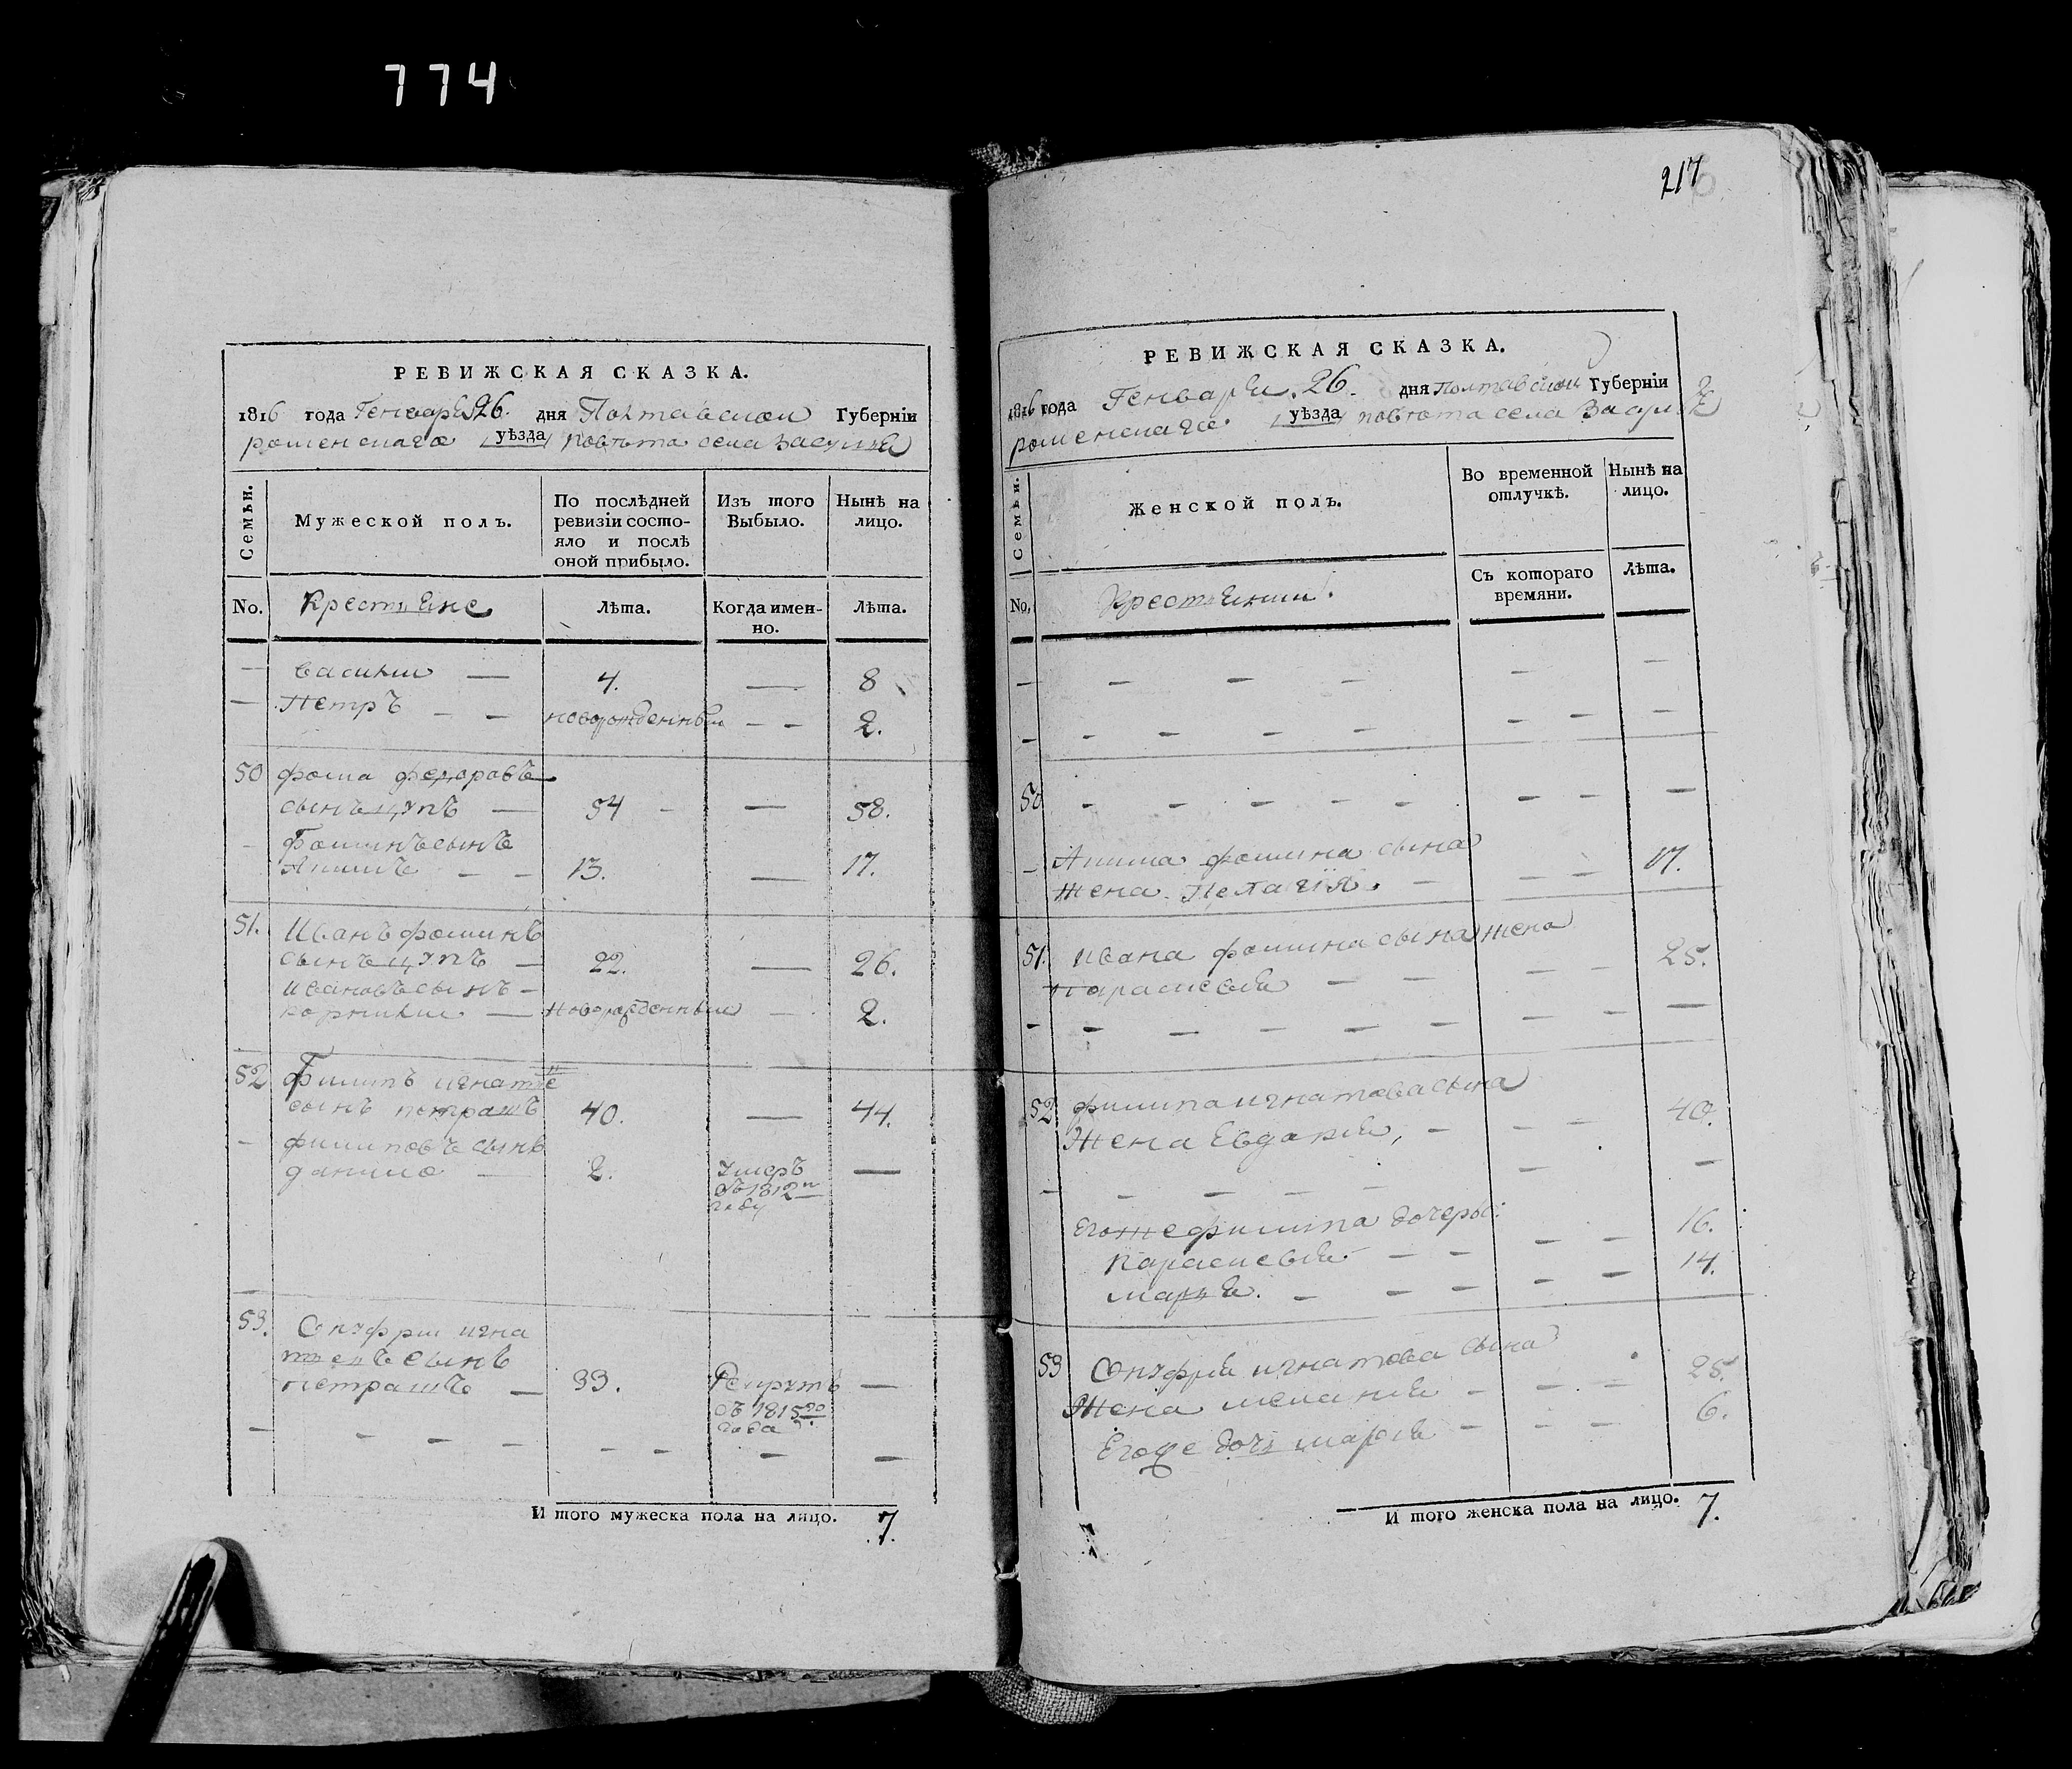 774
РЕВИЖСКАЯ СКАЗКА.
1816 года Генваря 26. дня Полтавской Губерніи
роменскаго уѣзда повѣта села Засулья
Семьи.
Мужеской полъ.
По послѣдней ревизіи состояло и послѣ оной прибыло.
Изъ того Выбыло.
Нынѣ на лицо.
No.
Крестьяне
Лѣта.
Когда именно.
Лѣта.
— Василий — 4. — 8
— Петръ — — новорожденный — — 2.
50 фома федоровъ
сынъ цупъ — 54 - — 58.
- Фоминъ сынъ
Акимъ — — 13. — 17.
51. Иванъ фоминъ
сынъ цупъ — 22. — 26.
Ивановъ сынъ -
корнилий — новорожденный — 2.
52 Филипъ игнатіе
сынъ петрашъ 40. — 44.
- филиповъ сынъ
данило — 2. умеръ —
въ 1812м
году
53. Онуфрий игна
тевъ сынъ
петрашъ — 33. Рекрутъ —
въ 1815го
года
— - - - - - — —
И того мужеска пола на лицо. 7.
217
РЕВИЖСКАЯ СКАЗКА.
1816 года Генваря. 26. дня Полтавской Губерніи
роменскаго уѣзда повѣта села Засулья
Семьи.
Женской полъ.
Во временной отлучкѣ.
Нынѣ на лицо.
No.
Крестьянки.
Съ котораго времяни.
Лѣта.
— — — — — —
- - - - - - — —
50 - - - - - — — —
- Акима фомина сына
жена Пелагія. — — — 17.
51. Ивана фомина сына жена 25.
Парасковия — — — —
- - - - - - — — —
52 филипа игнатова сына 40.
Жена Евдокия, - - —
— - - - - — —
Егоже филипа дочеры: 16.
Парасковия — — — — 14.
мария. - - - - —
53 Онуфрия игнатова сына 25.
Жена мелания - — - — 6.
Егоже дочь мария - - —
И того женска пола на лицо. 7.